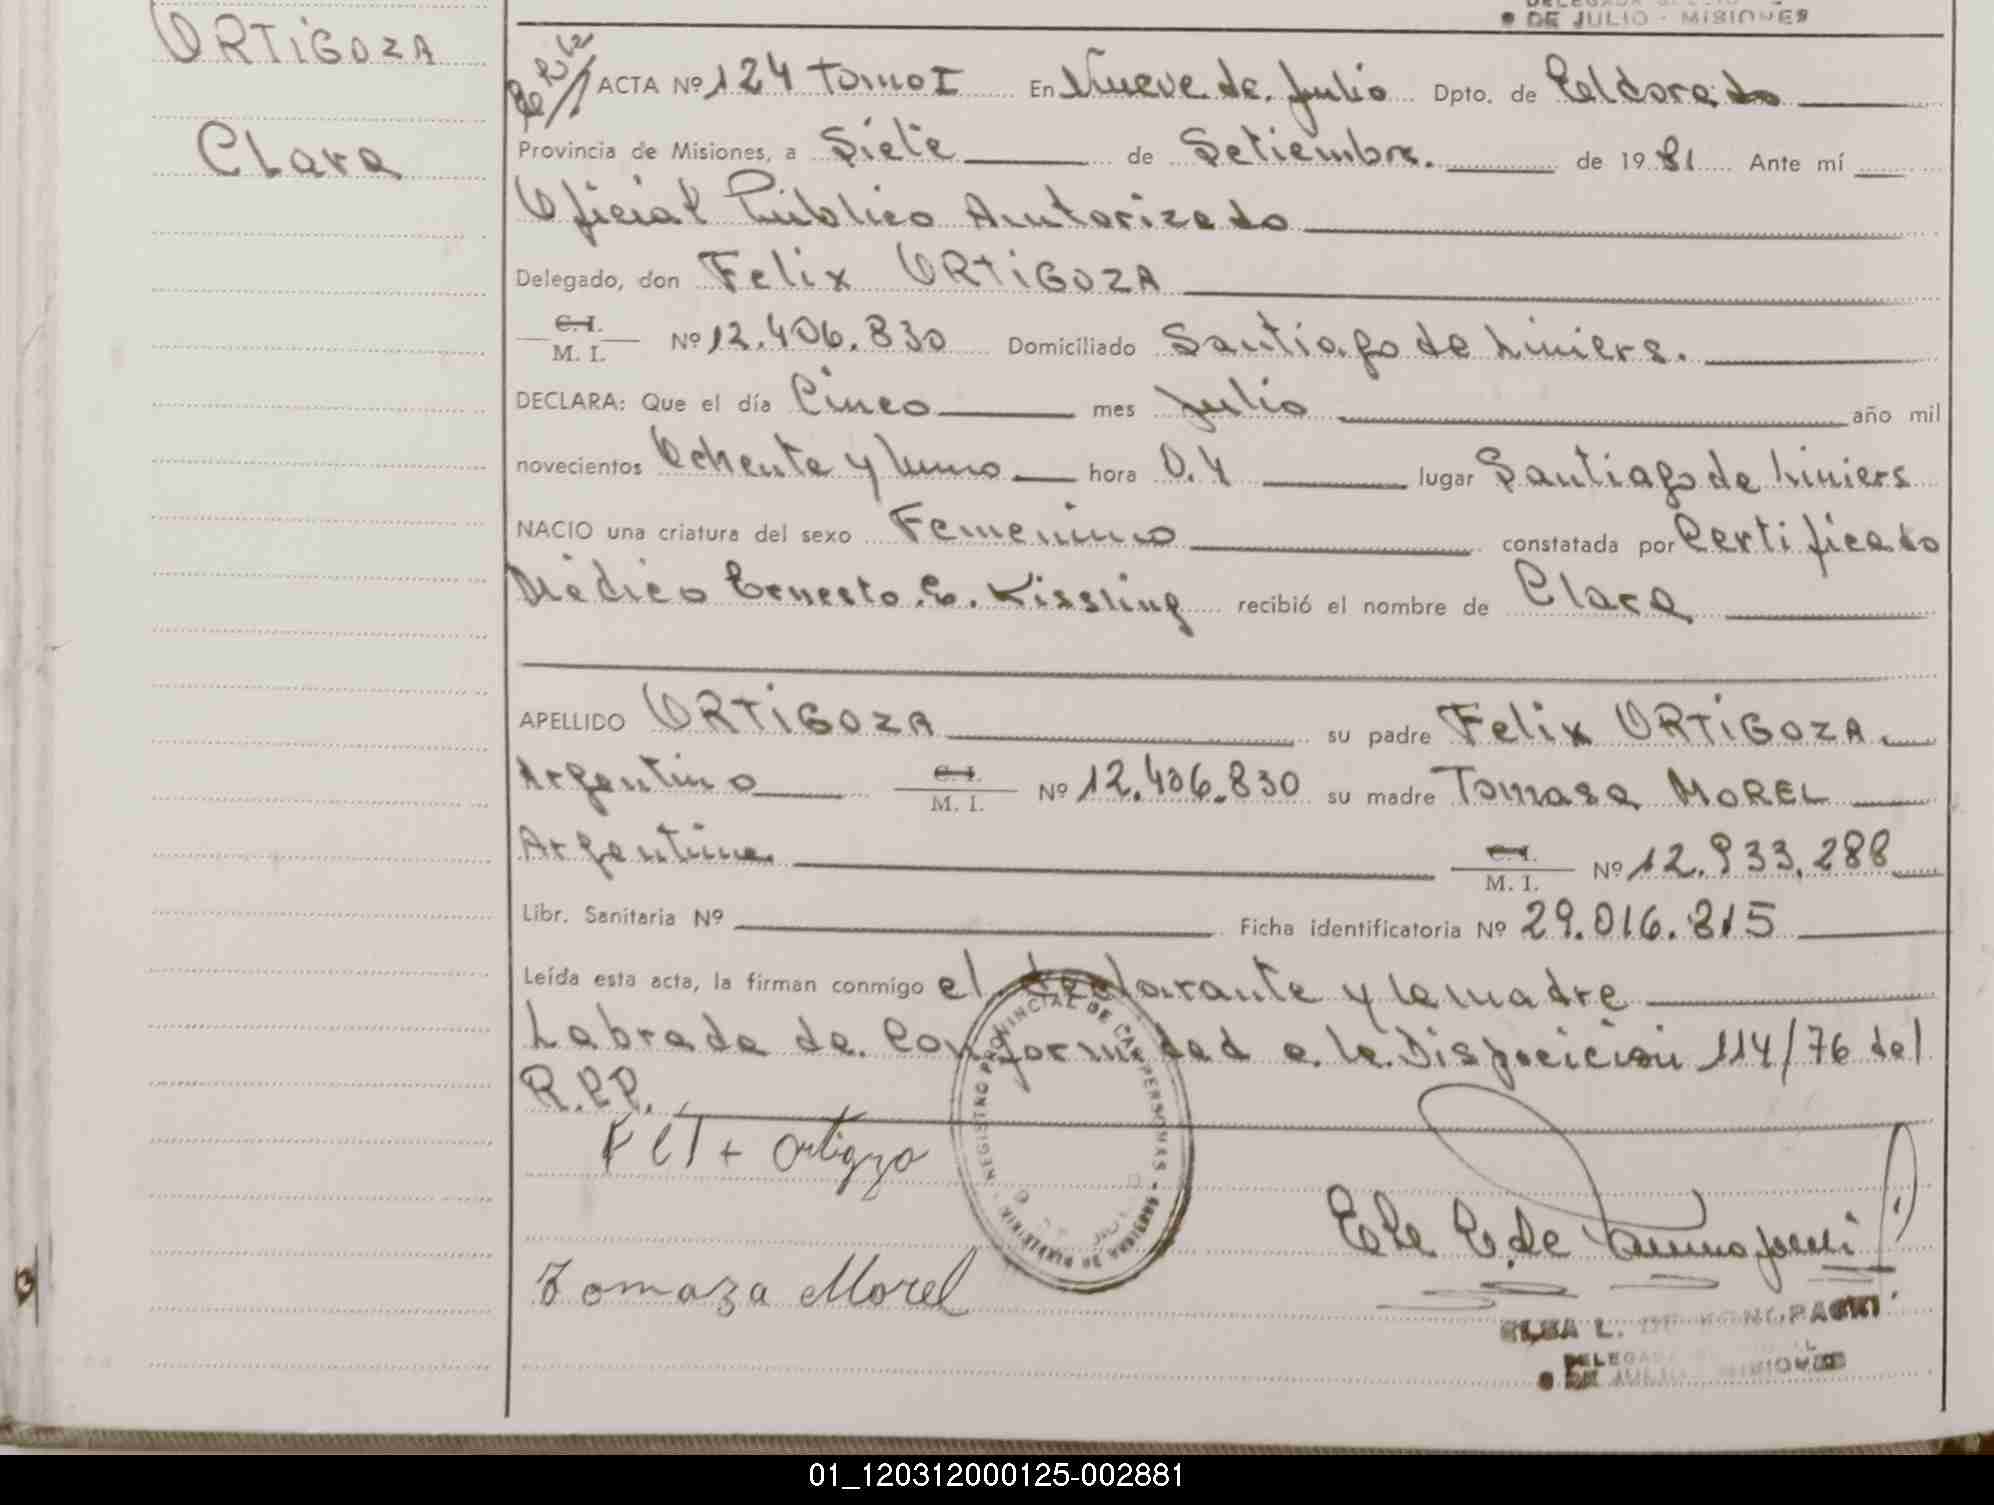 9 DE JULIO - MISIONES
ORTIGOZA
Clara
ACTA Nº 124 Tomo I En Nueve de Julio Dpto. de Eldorado
Provincia de Misiones, a Siete de Setiembre. de 1981 Ante mí
Oficial Público Autorizado
Delegado, don Felix ORTIGOZA
C. I.
M. I. Nº 12.406.830 Domiciliado Santiago de Liniers.
DECLARA: Que el día Cinco mes Julio año mil
novecientos Ochenta y Uno hora 0.4 lugar Santiago de Liniers
NACIO una criatura del sexo Femenino constatada por Certificado
Médico Ernesto. E. Kissling recibió el nombre de Clara
APELLIDO ORTIGOZA su padre Felix ORTIGOZA.
Argentino C. I. M. I. Nº 12.406.830 su madre Tomasa MOREL
Argentina. C. I. M. I. Nº 12.933.288
Libr. Sanitaria Nº Ficha identificatoria Nº 29.016.815
Leída esta acta, la firman conmigo el declarante y la madre
Labrada de Conformidad a la Disposición 114/76 del
R.P.P.
REGISTRO PROVINCIAL DE LAS PERSONAS
Tomaza Morel
ELBA L. DE
9 DE JULIO MISIONES
01_120312000125-002881